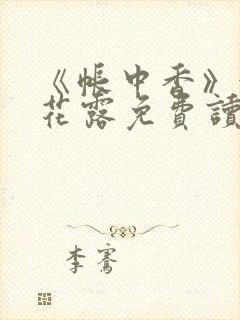 《帳中香》
花露免費讀
李騫